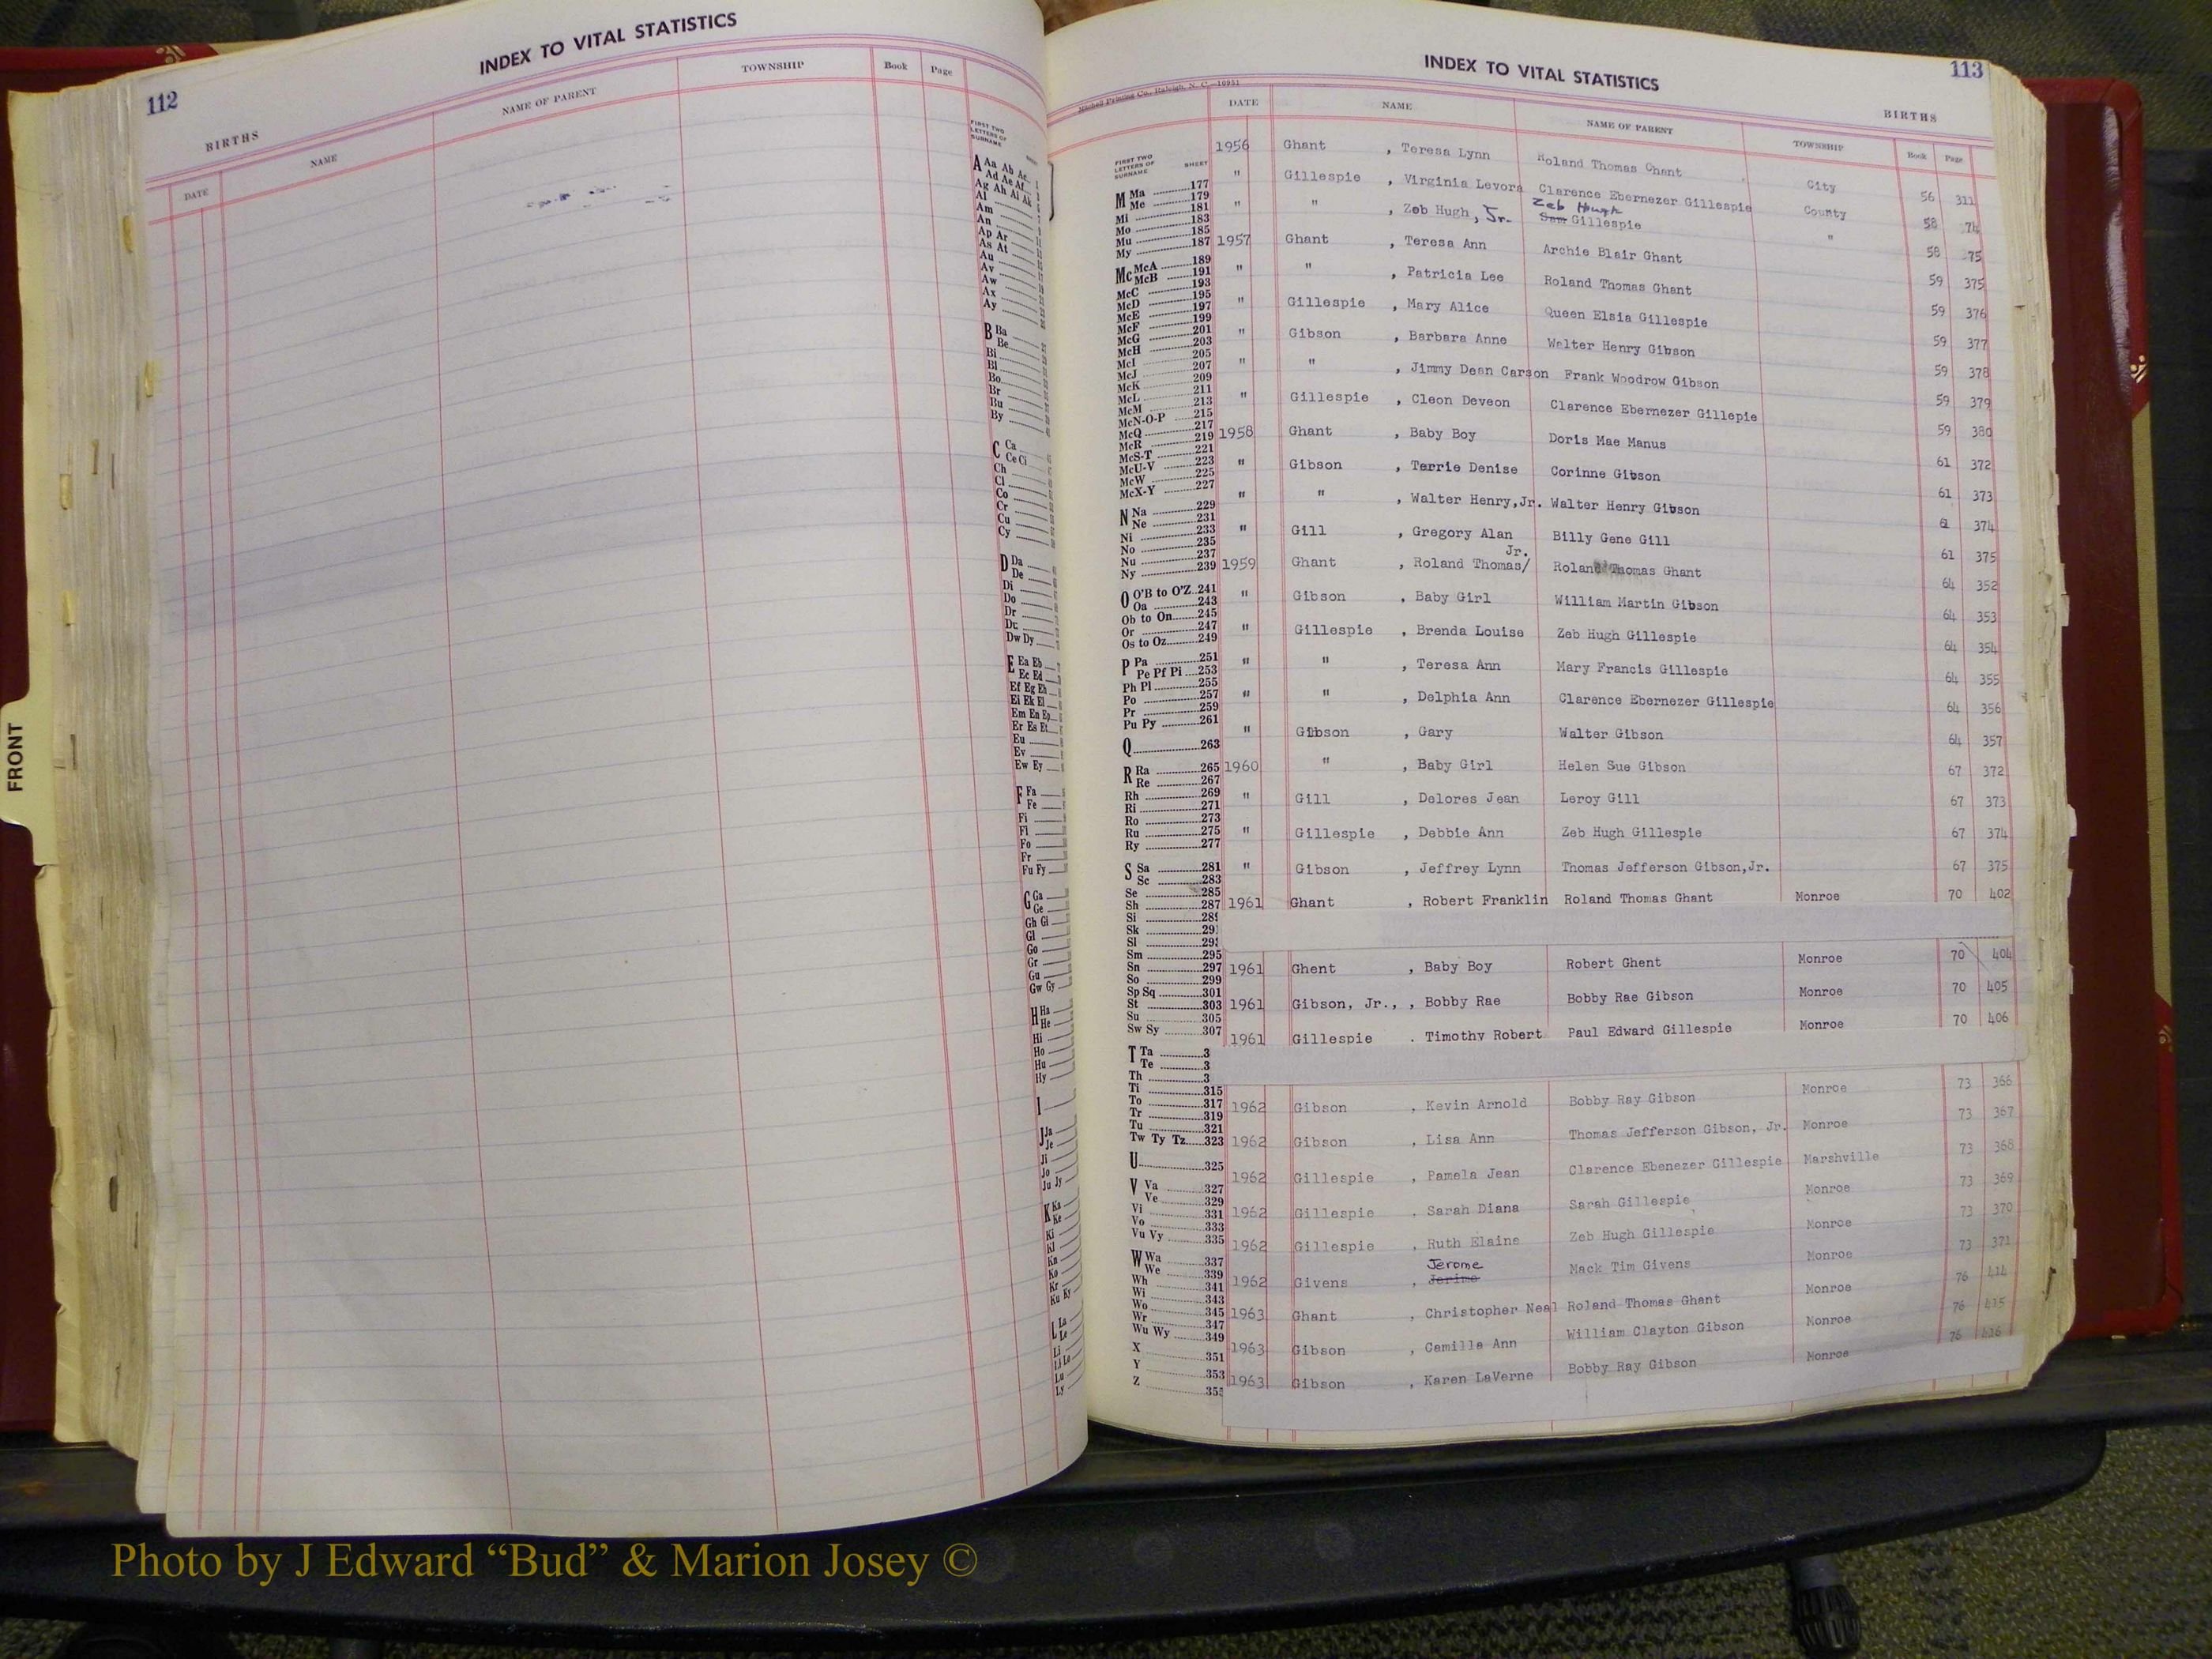 112
INDEX TO VITAL STATISTICS
BIRTHS
DATE NAME NAME OF PARENT TOWNSHIP Book Page
FRONT
FIRST TWO LETTERS OF SURNAME
A Aa Ab Ac
Ad Ae Af
Ag Ah Ai Ak
Al
Am
An
Ap Ar
As At
Au
Av
Aw
Ax
Ay
B Ba
Be
Bi
Bl
Bo
Br
Bu
By
C Ca
Ce Ci
Ch
Cl
Co
Cr
Cu
Cy
D Da
De
Di
Do
Dr
Du
Dw Dy
E Ea Eb
Ec Ed
Ef Eg Eh
Ei Ek El
Em En Ep
Er Es Et
Eu
Ev
Ew Ey
F Fa
Fe
Fi
Fl
Fo
Fr
Fu Fy
G Ga
Ge
Gh Gi
Gl
Go
Gr
Gu
Gw Gy
H Ha
He
Hi
Ho
Hu
Hy
I
J Ja
Je
Ji
Jo
Ju Jy
K Ka
Ke
Ki
Kl
Kn
Ko
Kr
Ku Ky
L La
Le
Li
Ll Lo
Lu
Ly
113
INDEX TO VITAL STATISTICS
Mitchell Printing Co., Raleigh, N. C.—10951
BIRTHS
DATE NAME NAME OF PARENT TOWNSHIP Book Page
FIRST TWO LETTERS OF SURNAME SHEET
M Ma 177
Me 179
Mi 181
Mo 183
Mu 185
My 187
Mc McA 189
McB 191
McC 193
McD 195
McE 197
McF 199
McG 201
McH 203
McI 205
McJ 207
McK 209
McL 211
McM 213
McN-O-P 215
McQ 217
McR 219
McS-T 221
McU-V 223
McW 225
McX-Y 227
N Na 229
Ne 231
Ni 233
No 235
Nu 237
Ny 239
O O'B to O'Z 241
Oa 243
Ob to On 245
Or 247
Os to Oz 249
P Pa 251
Pe Pf Pi 253
Ph Pl 255
Po 257
Pr 259
Pu Py 261
Q 263
R Ra 265
Re 267
Rh 269
Ri 271
Ro 273
Ru 275
Ry 277
S Sa 281
Sc 283
Se 285
Sh 287
Si 28
Sk 29
Sl 29
Sm 295
Sn 297
So 299
Sp Sq 301
St 303
Su 305
Sw Sy 307
T Ta 3
Te 3
Th 3
Ti 315
To 317
Tr 319
Tu 321
Tw Ty Tz 323
U 325
V Va 327
Ve 329
Vi 331
Vo 333
Vu Vy 335
W Wa 337
We 339
Wh 341
Wi 343
Wo 345
Wr 347
Wu Wy 349
X 351
Y 353
Z 355
1956 Ghant , Teresa Lynn Roland Thomas Ghant City 56 311
" Gillespie , Virginia Levora Clarence Ebernezer Gillespie County 58 74
" " , Zeb Hugh, Jr. Zeb Hugh Sam Gillespie " 58 75
1957 Ghant , Teresa Ann Archie Blair Ghant 59 375
" " , Patricia Lee Roland Thomas Ghant 59 376
" Gillespie , Mary Alice Queen Elsia Gillespie 59 377
" Gibson , Barbara Anne Walter Henry Gibson 59 378
" " , Jimmy Dean Carson Frank Woodrow Gibson 59 379
" Gillespie , Cleon Deveon Clarence Ebernezer Gillepie 59 380
1958 Ghant , Baby Boy Doris Mae Manus 61 372
" Gibson , Terrie Denise Corinne Gibson 61 373
" " , Walter Henry,Jr. Walter Henry Gibson 61 374
" Gill , Gregory Alan Billy Gene Gill 61 375
1959 Ghant , Roland Thomas/ Jr. Roland Thomas Ghant 64 352
" Gibson , Baby Girl William Martin Gibson 64 353
" Gillespie , Brenda Louise Zeb Hugh Gillespie 64 354
" " , Teresa Ann Mary Francis Gillespie 64 355
" " , Delphia Ann Clarence Ebernezer Gillespie 64 356
" Gibson , Gary Walter Gibson 64 357
1960 " , Baby Girl Helen Sue Gibson 67 372
" Gill , Delores Jean Leroy Gill 67 373
" Gillespie , Debbie Ann Zeb Hugh Gillespie 67 374
" Gibson , Jeffrey Lynn Thomas Jefferson Gibson,Jr. 67 375
1961 Ghant , Robert Franklin Roland Thomas Ghant Monroe 70 402
1961 Ghent , Baby Boy Robert Ghent Monroe 70 404
1961 Gibson, Jr., , Bobby Rae Bobby Rae Gibson Monroe 70 405
1961 Gillespie . Timothy Robert Paul Edward Gillespie Monroe 70 406
1962 Gibson , Kevin Arnold Bobby Ray Gibson Monroe 73 366
1962 Gibson , Lisa Ann Thomas Jefferson Gibson, Jr. Monroe 73 367
1962 Gillespie , Pamela Jean Clarence Ebenezer Gillespie Marshville 73 368
1962 Gillespie , Sarah Diana Sarah Gillespie Monroe 73 369
1962 Gillespie , Ruth Elaine Zeb Hugh Gillespie Monroe 73 370
1962 Givens , Jerome Jerime Mack Tim Givens Monroe 73 371
1963 Ghant , Christopher Neal Roland Thomas Ghant Monroe 76 414
1963 Gibson , Camille Ann William Clayton Gibson Monroe 76 415
1963 Gibson , Karen LaVerne Bobby Ray Gibson Monroe 76 416
Photo by J Edward “Bud” & Marion Josey ©